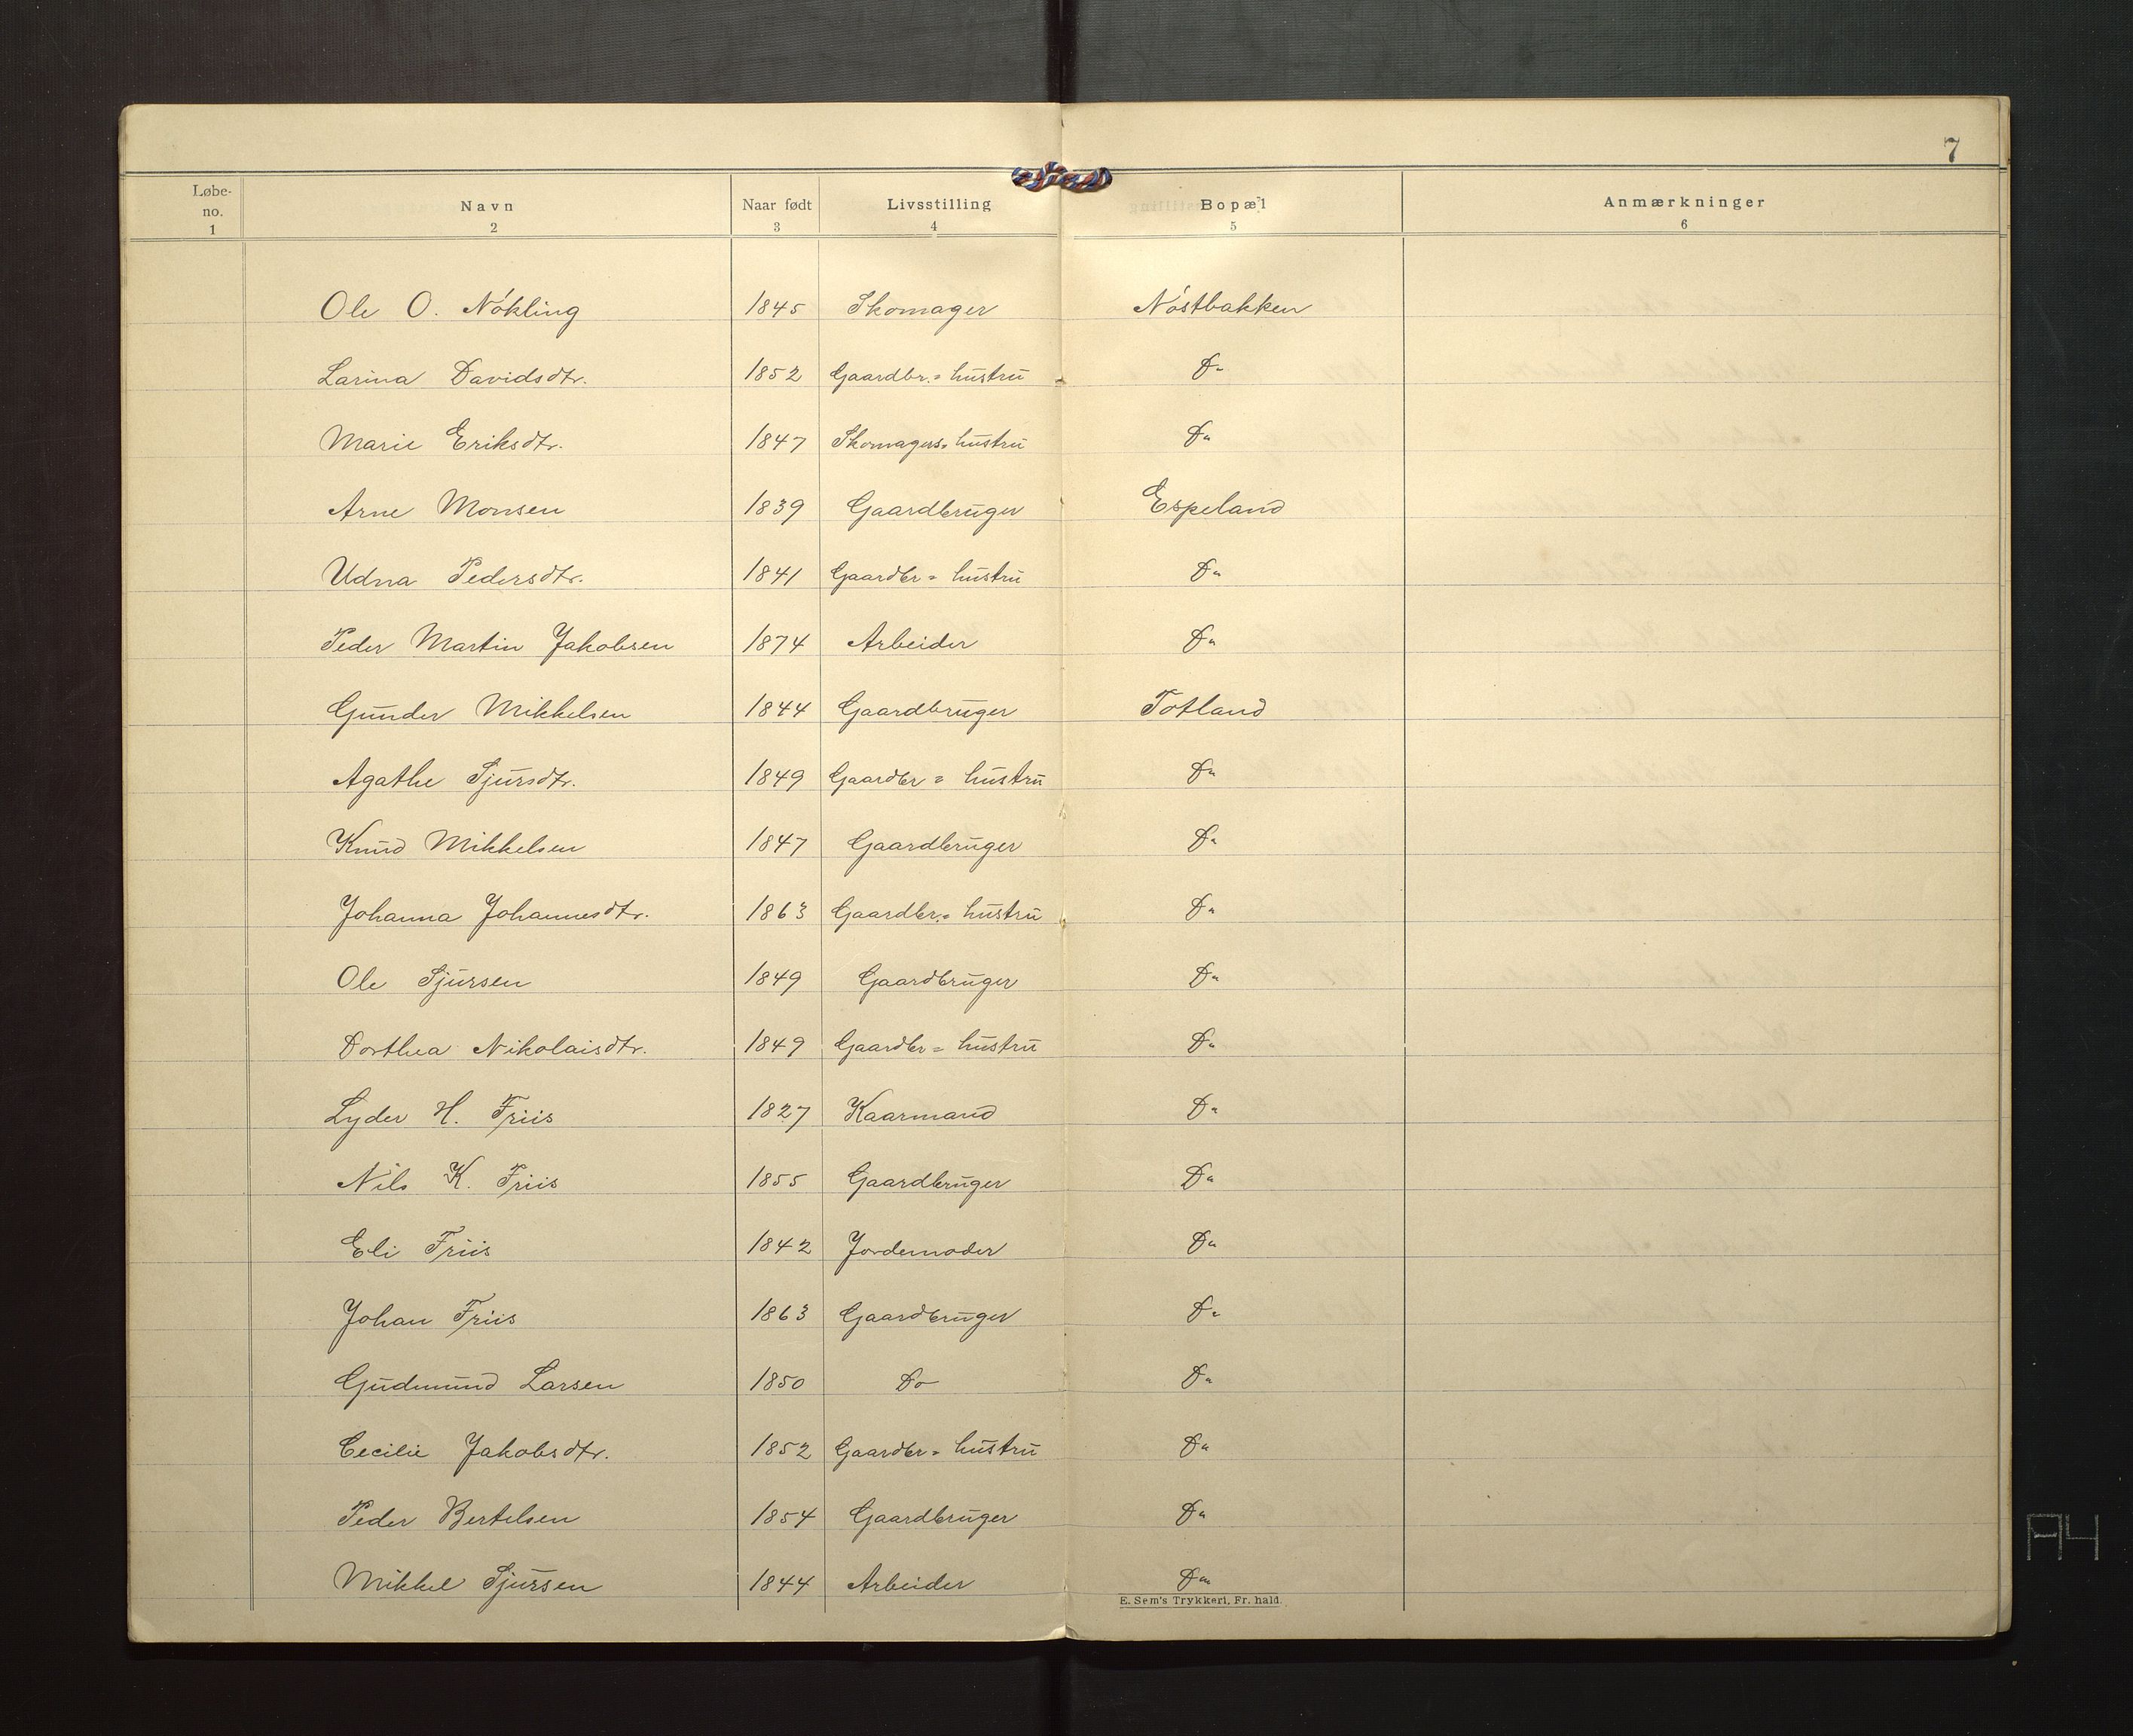 7
Løbe-no. Navn Naar født Livsstilling Bopæl Anmærkninger
1 2 3 4 5 6
Ole O. Nøkling 1845 Skomager Nøstbakken
Larina Davidsdtr. 1852 Gaardbr.= hustru Do
Marie Eriksdtr. 1847 Skomagers= hustru Do
Arne Monsen 1839 Gaardbruger Espeland
Udna Pedersdtr. 1841 Gaardbr = hustru Do
Peder Martin Jakobsen 1874 Arbeider Do
Gunder Mikkelsen 1844 Gaardbruger Totland
Agathe Sjursdtr. 1849 Gaardbr = hustru Do
Knud Mikkelsen 1847 Gaardbruger Do
Johanna Johannesdtr. 1863 Gaardbr.= hustru Do
Ole Sjursen 1849 Gaardbruger Do
Dorthea Nikolaisdtr. 1849 Gaardbr = hustru Do
Lyder H. Friis 1827 Kaarmand Do
Nils K. Friis 1855 Gaardbruger Do
Eli Friis 1842 Jordemoder Do
Johan Friis 1863 Gaardbruger Do
Gudmund Larsen 1850 Do Do
Cecilie Jakobsdtr. 1852 Gaardbr = hustru Do
Peder Bertelsen 1854 Gaardbruger Do
Mikkel Sjursen 1844 Arbeider Do
E. Sem's Trykkeri, Fr. hald.
A4